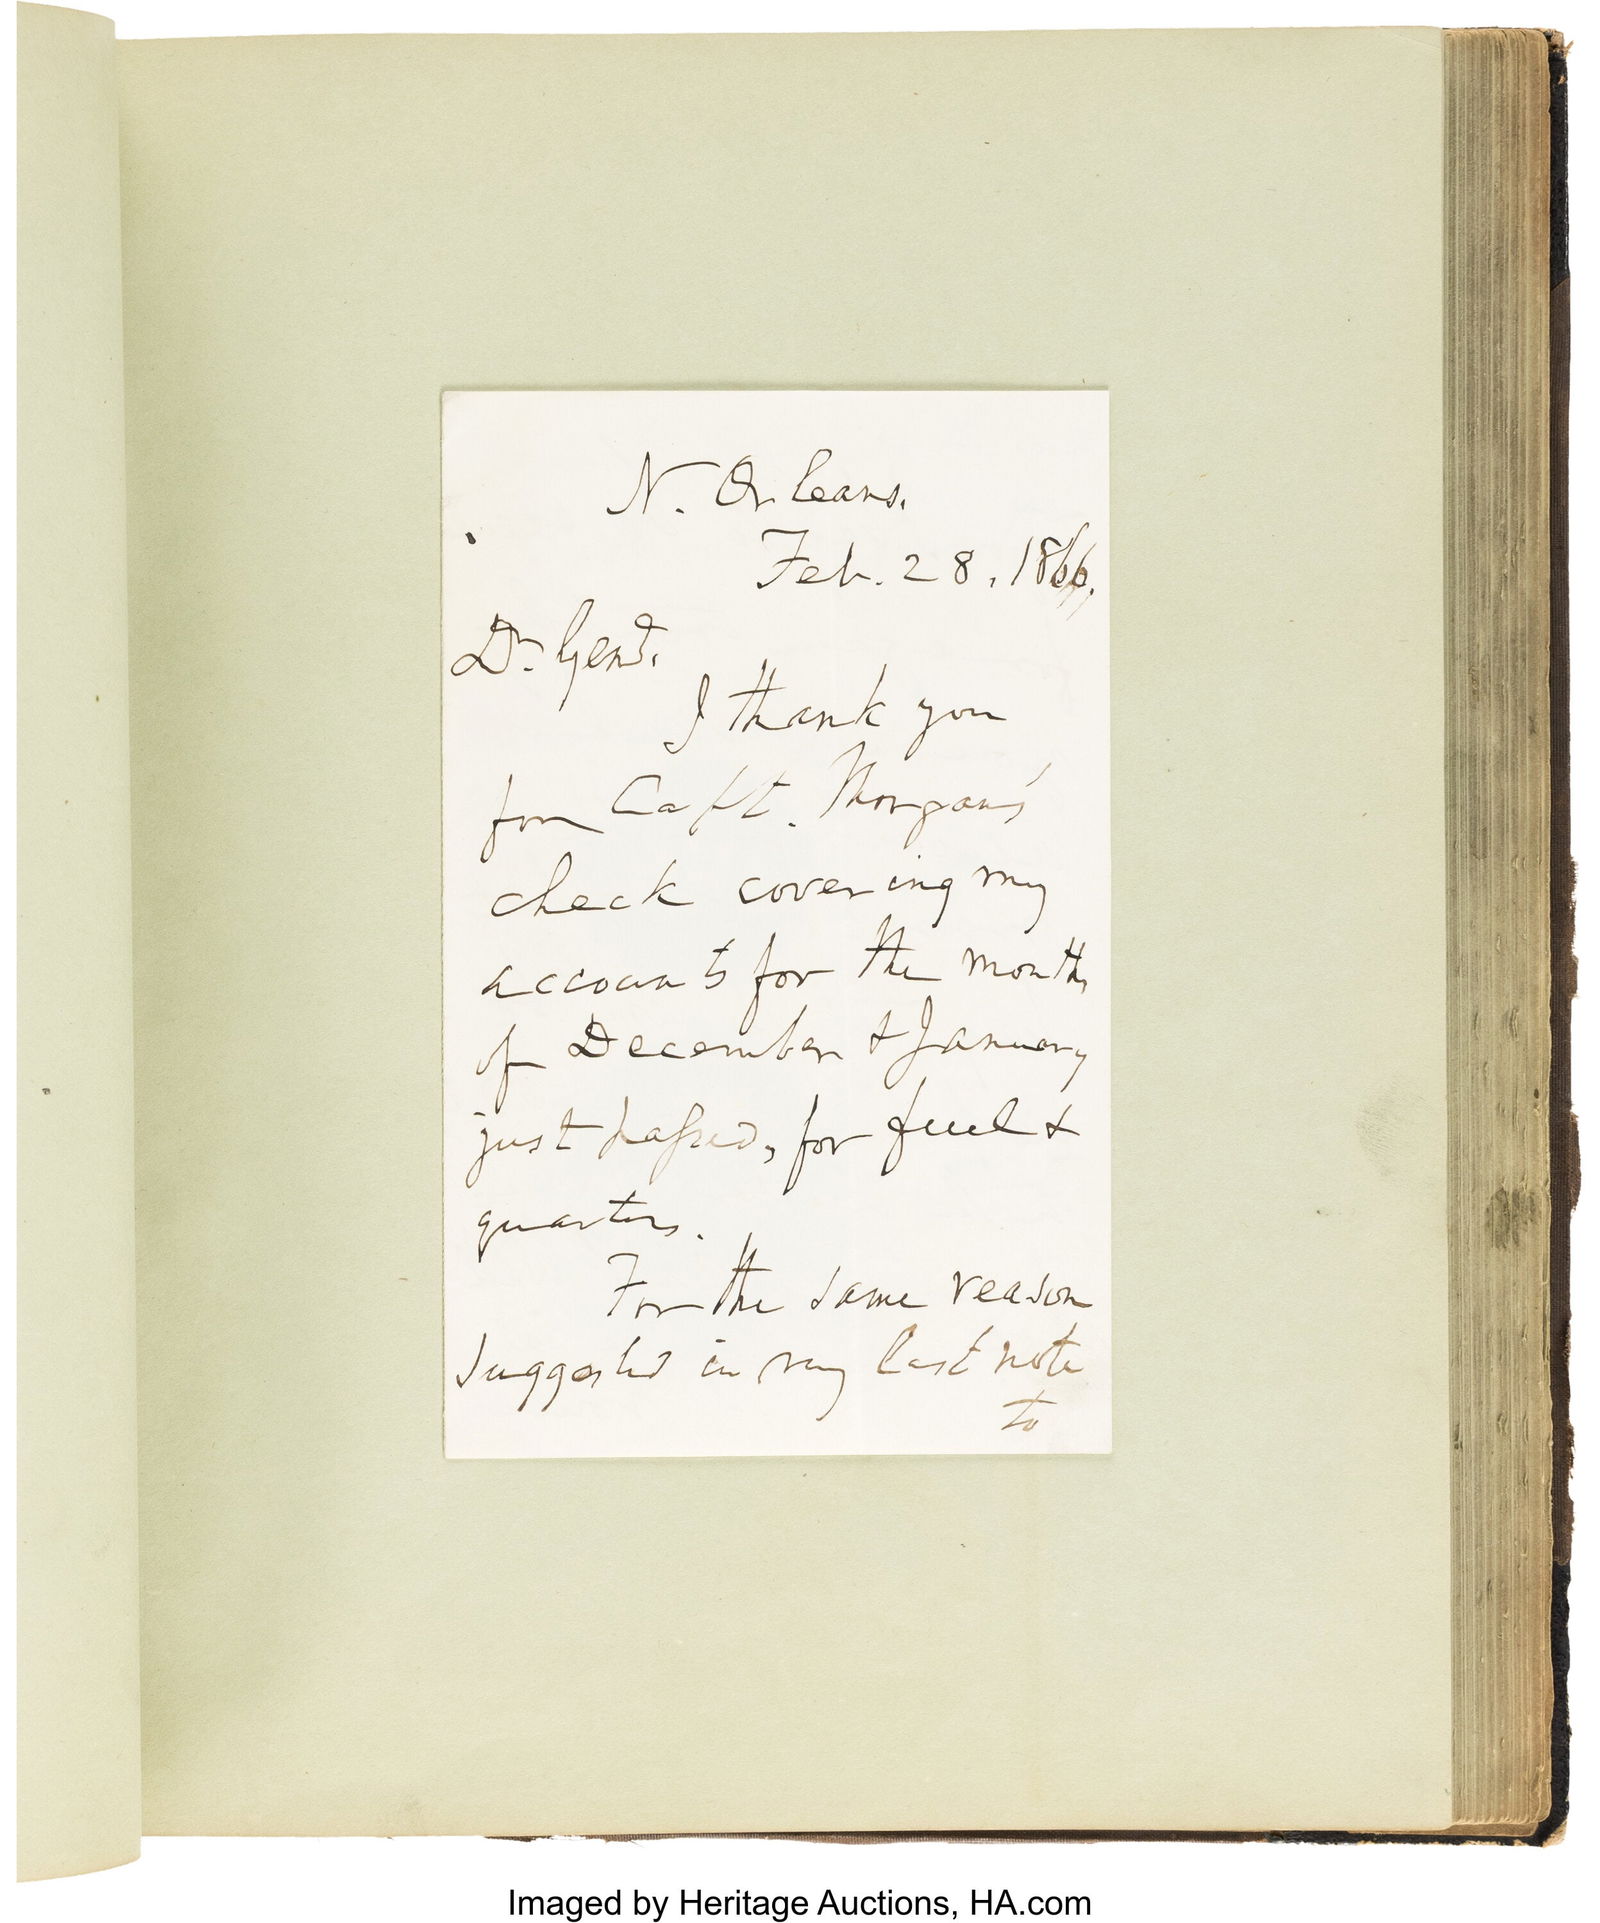 N. Orleans.
Feb. 28, 1866.
Dr. Genl.
I thank you
for Capt. Morgan's
check covering my
accounts for the months
of December & January
just passed, for fuel &
quarters.
For the same reason
suggested in my last note
to
Imaged by Heritage Auctions, HA.com